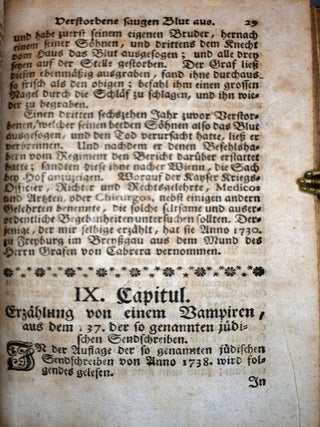 Verstorbene saugen Blut aus. 29
und habe zuerst seinem eigenen Bruder, hernach
einem seiner Söhnen, und drittens dem Knecht
vom Haus das Blut ausgesogen; und alle drey
seyen auf der Stelle gestorben. Der Graf ließ
diesen ebenmäßig ausgraben, fand ihne durchaus
so frisch als den obigen; befahl ihm einen grossen
Nagel durch die Schläf zu schlagen, und ihn wie-
der zu begraben.
Einen dritten sechszehen Jahr zuvor Verstor-
benen, welcher seinen beeden Söhnen also das Blut
ausgesogen, und den Tod verursacht hatte, ließ er
verbrennen. Und nachdem er denen Befehlsha-
bern vom Regiment den Bericht darüber erstattet
hatte; sandten diese ihne nacher Wien, die Sach
bey Hof anzuzeigen. Worauf der Kayser Kriegs-
Officier, Richter und Rechtsgelehrte, Medicos
und Aerzten, oder Chirurgos, nebst einigen andern
Gelehrten benennte, die solche seltsame und ausser-
ordentliche Begebenheiten untersuchen sollten. Der-
jenige, der mir selbige erzählt, hat sie Anno 1730.
zu Freyburg im Breyßgau aus dem Mund des
Herrn Grafen von Cabrera vernommen.
IX. Capitul.
Erzählung von einem Vampiren,
aus dem 137. der so genannten jüdi-
schen Sendschreiben.
IN der Auflage der so genannten jüdischen
Sendschreiben von Anno 1738. wird fol-
gendes gelesen.
In